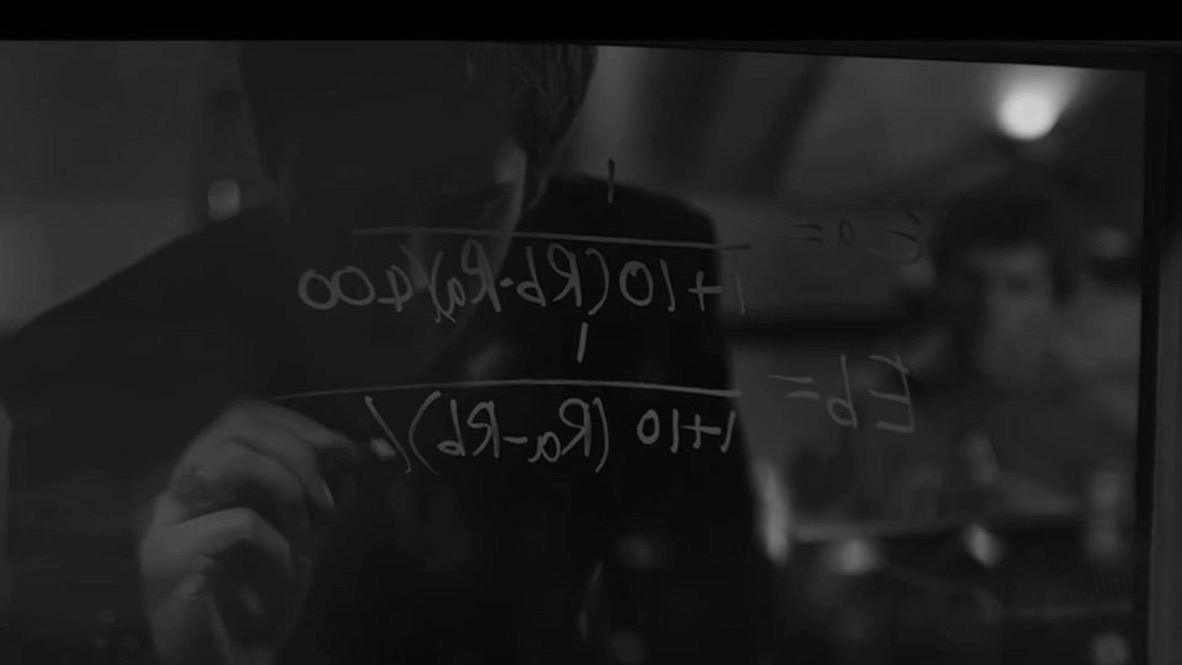 1
Ea =
1+10(Rb-Ra)/400
1
Eb =
1+10(Ra-Rb)/